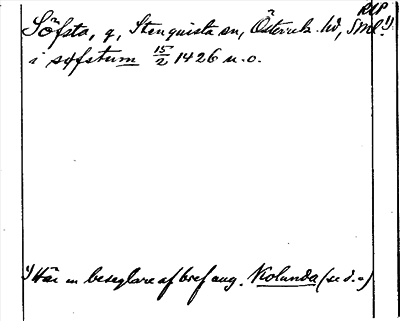 RAP
Söfsta, g, Stenquista sn, Österrek. hd, Sml. 1)
i søfstum 15/2 1426 u.o.
1) Här en beseglare af bref ang. Kolunda (se d.o)